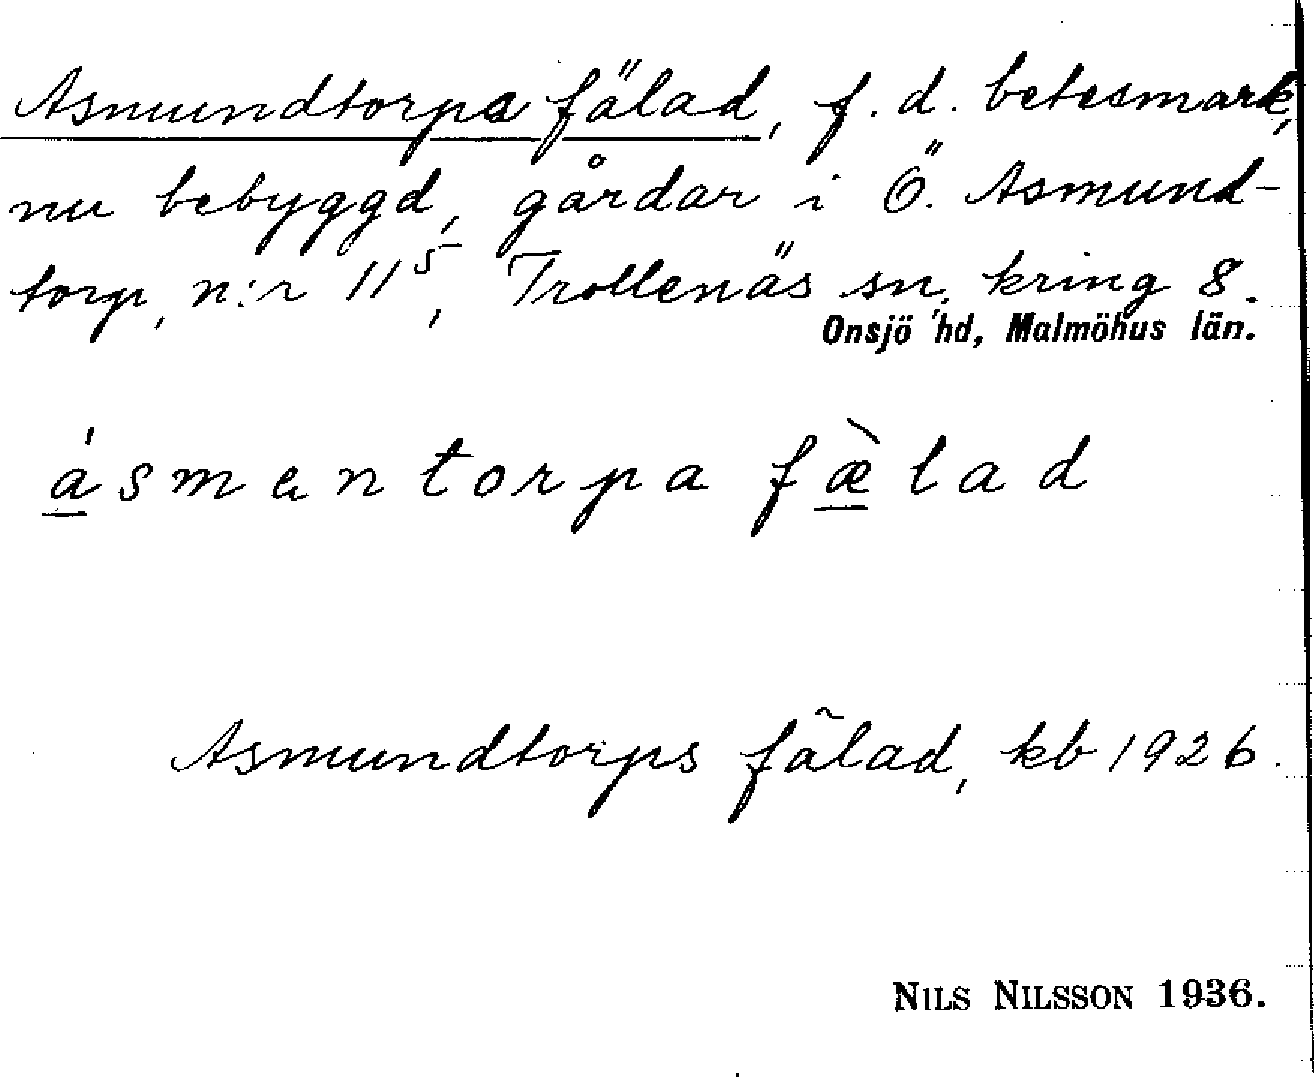 Asmundtorps fälad, f.d. betesmark,
nu bebyggd, gårdar i Ö. Asmund-
torp, n:r 11⁵, Trollenäs sn. kring 8.
Onsjö hd, Malmöhus län.
ásmentorpa fæ̀lad
Asmundtorps fälad, kb 1926.
NILS NILSSON 1936.